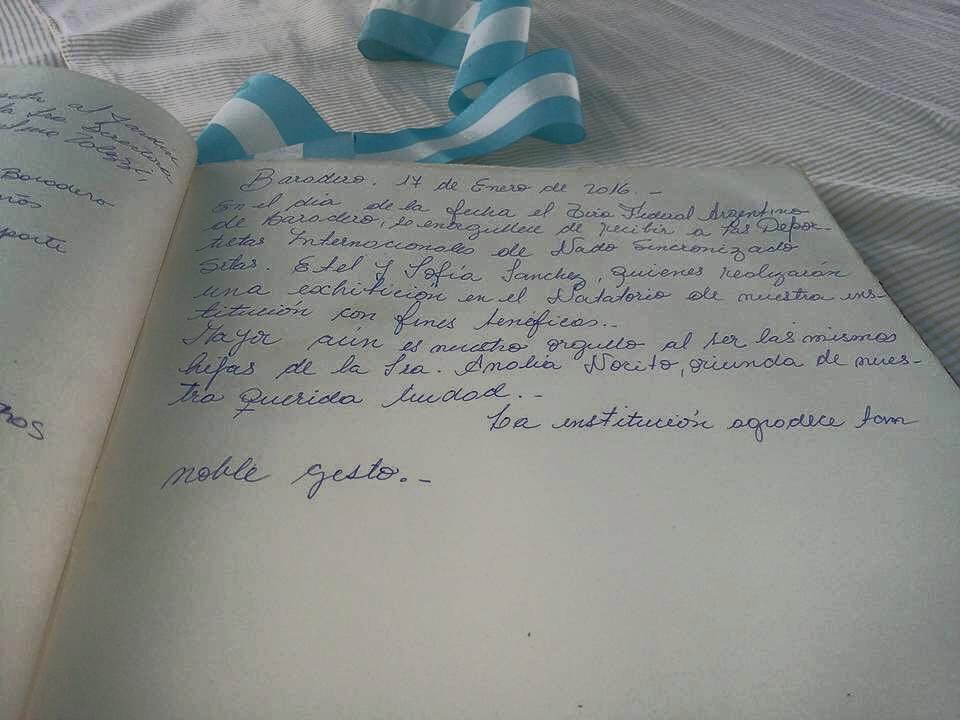 seta al Jardin
la Sra Directora
Baradero
porte
Baradero. 17 de Enero de 2016.-
En el día de la fecha el Tiro Federal Argentino
de Baradero, se enorgullece de recibir a las Depor-
tistas Internacionales de Nado Sincronizado
Sritas. Etel y Sofía Sanchez, quienes realizarán
una exhibición en el Natatorio de nuestra ins-
titución con fines benéficos..
Mayor aún es nuestro orgullo al ser las mismas
hijas de la Sra. Analia Nocito, oriunda de nues-
tra Querida Ciudad.-
La institución agradece tam
noble gesto.-